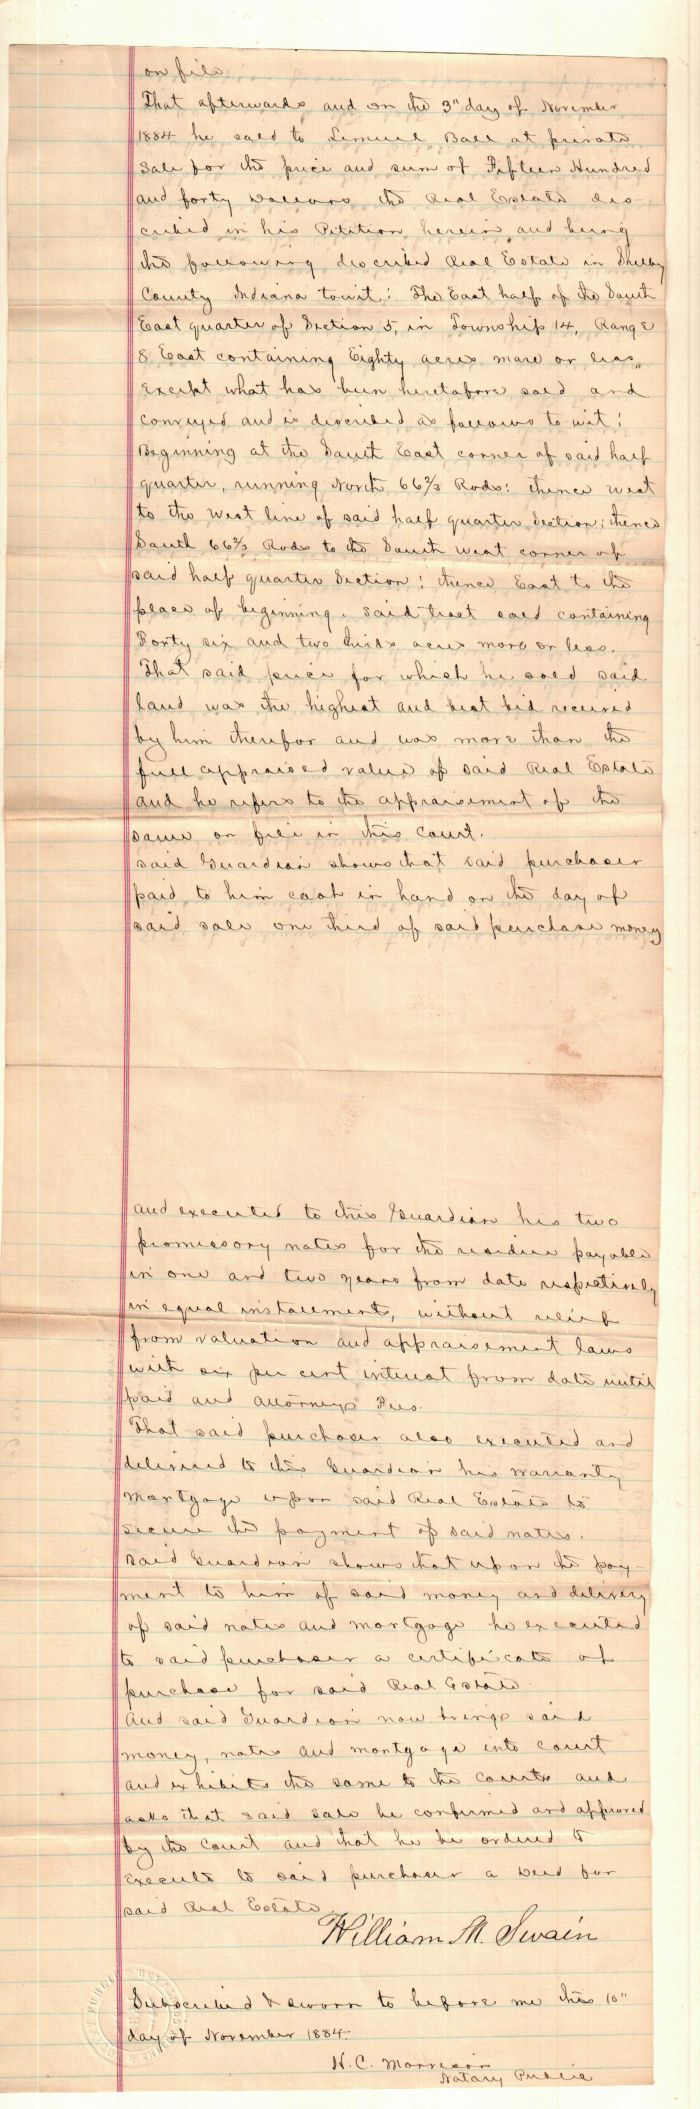 on file
That afterwards and on the 3" day of November
1884 he sold to Lemuel Ball at private
Sale for the price and sum of Fifteen Hundred
and forty Dollars the Real Estate des-
cribed in his Petition herein and being
the following described Real Estate in Shelby
County Indiana towit: The East half of the South
East quarter of Section 5, in Township 14, Range
8 East containing Eighty acres more or less
Except what has been heretofore sold and
conveyed and is described as follows to wit:
Beginning at the South East corner of said half
quarter, running North 66⅔ Rods: thence west
to the West line of said half quarter Section; thence
South 66⅔ Rods to the South west corner of
said half quarter Section: thence East to the
place of beginning. Said tract sold containing
Forty six and two thirds acres more or less.
That said price for which he sold said
land was the highest and best bid received
by him therefor and was more than the
full appraised value of said Real Estate
and he refers to the appraisement of the
same on file in this court.
Said Guardian shows that said purchaser
paid to him cash in hand on the day of
said sale one third of said purchase money
and executed to this Guardian his two
promissory notes for the residue payable
in one and two years from date respectively
in equal installments, without relief
from valuation and appraisement laws
with six per cent interest from date until
paid and attorneys Fees.
That said purchaser also executed and
delivered to this Guardian his warranty
Mortgage upon said Real Estate to
secure the payment of said notes.
Said Guardian shows that upon the pay-
ment to him of said money and delivery
of said notes and mortgage he executed
to said purchaser a certificate of
purchase for said Real Estate.
And said Guardian now brings said
money, notes and mortgage into court
and exhibits the same to the courts and
asks that said sale be confirmed and approved
by the Court and that he be ordered to
Execute to said purchaser a Deed for
said Real Estate
William M. Swain
Subscribed & sworn to before me this 10"
day of November 1884.
N. C. Morrison
Notary Public